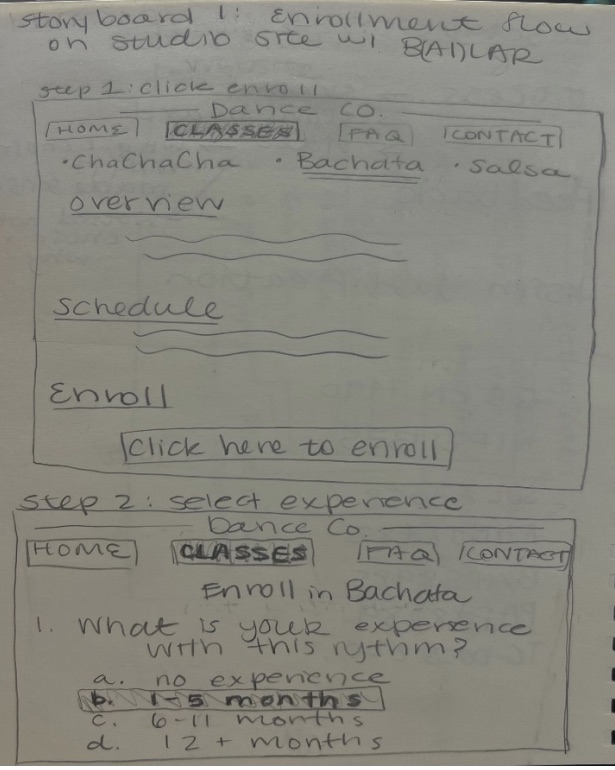 Storyboard 1: Enrollment flow
on studio site w/ B(AI)LAR
step 1: click enroll
Dance Co.
HOME CLASSES FAQ CONTACT
• ChaChaCha • Bachata • Salsa
overview
schedule
Enroll
Click here to enroll
step 2: select experience
Dance Co.
HOME CLASSES FAQ CONTACT
Enroll in Bachata
1. What is your experience
with this rythm?
a. no experience
b. 1-5 months
c. 6-11 months
d. 12+ months